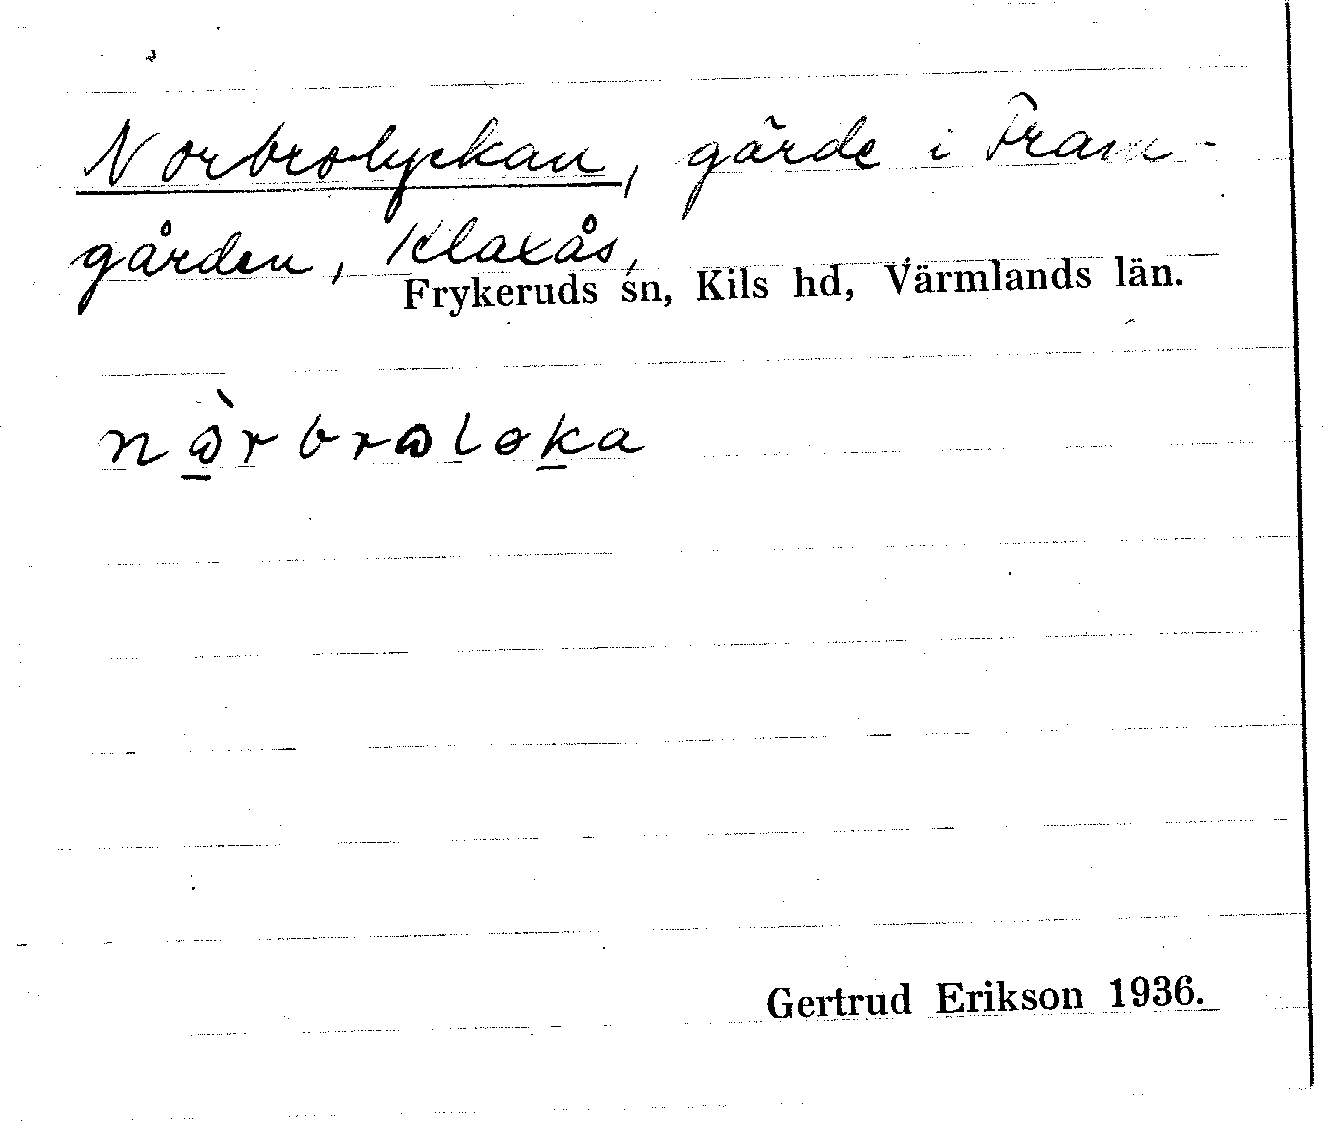 Norbrolyckan, gärde i Fram-
gården, Klaxås,
Frykeruds sn, Kils hd, Värmlands län.
nɷ̀rbrɷlɵka
Gertrud Erikson 1936.